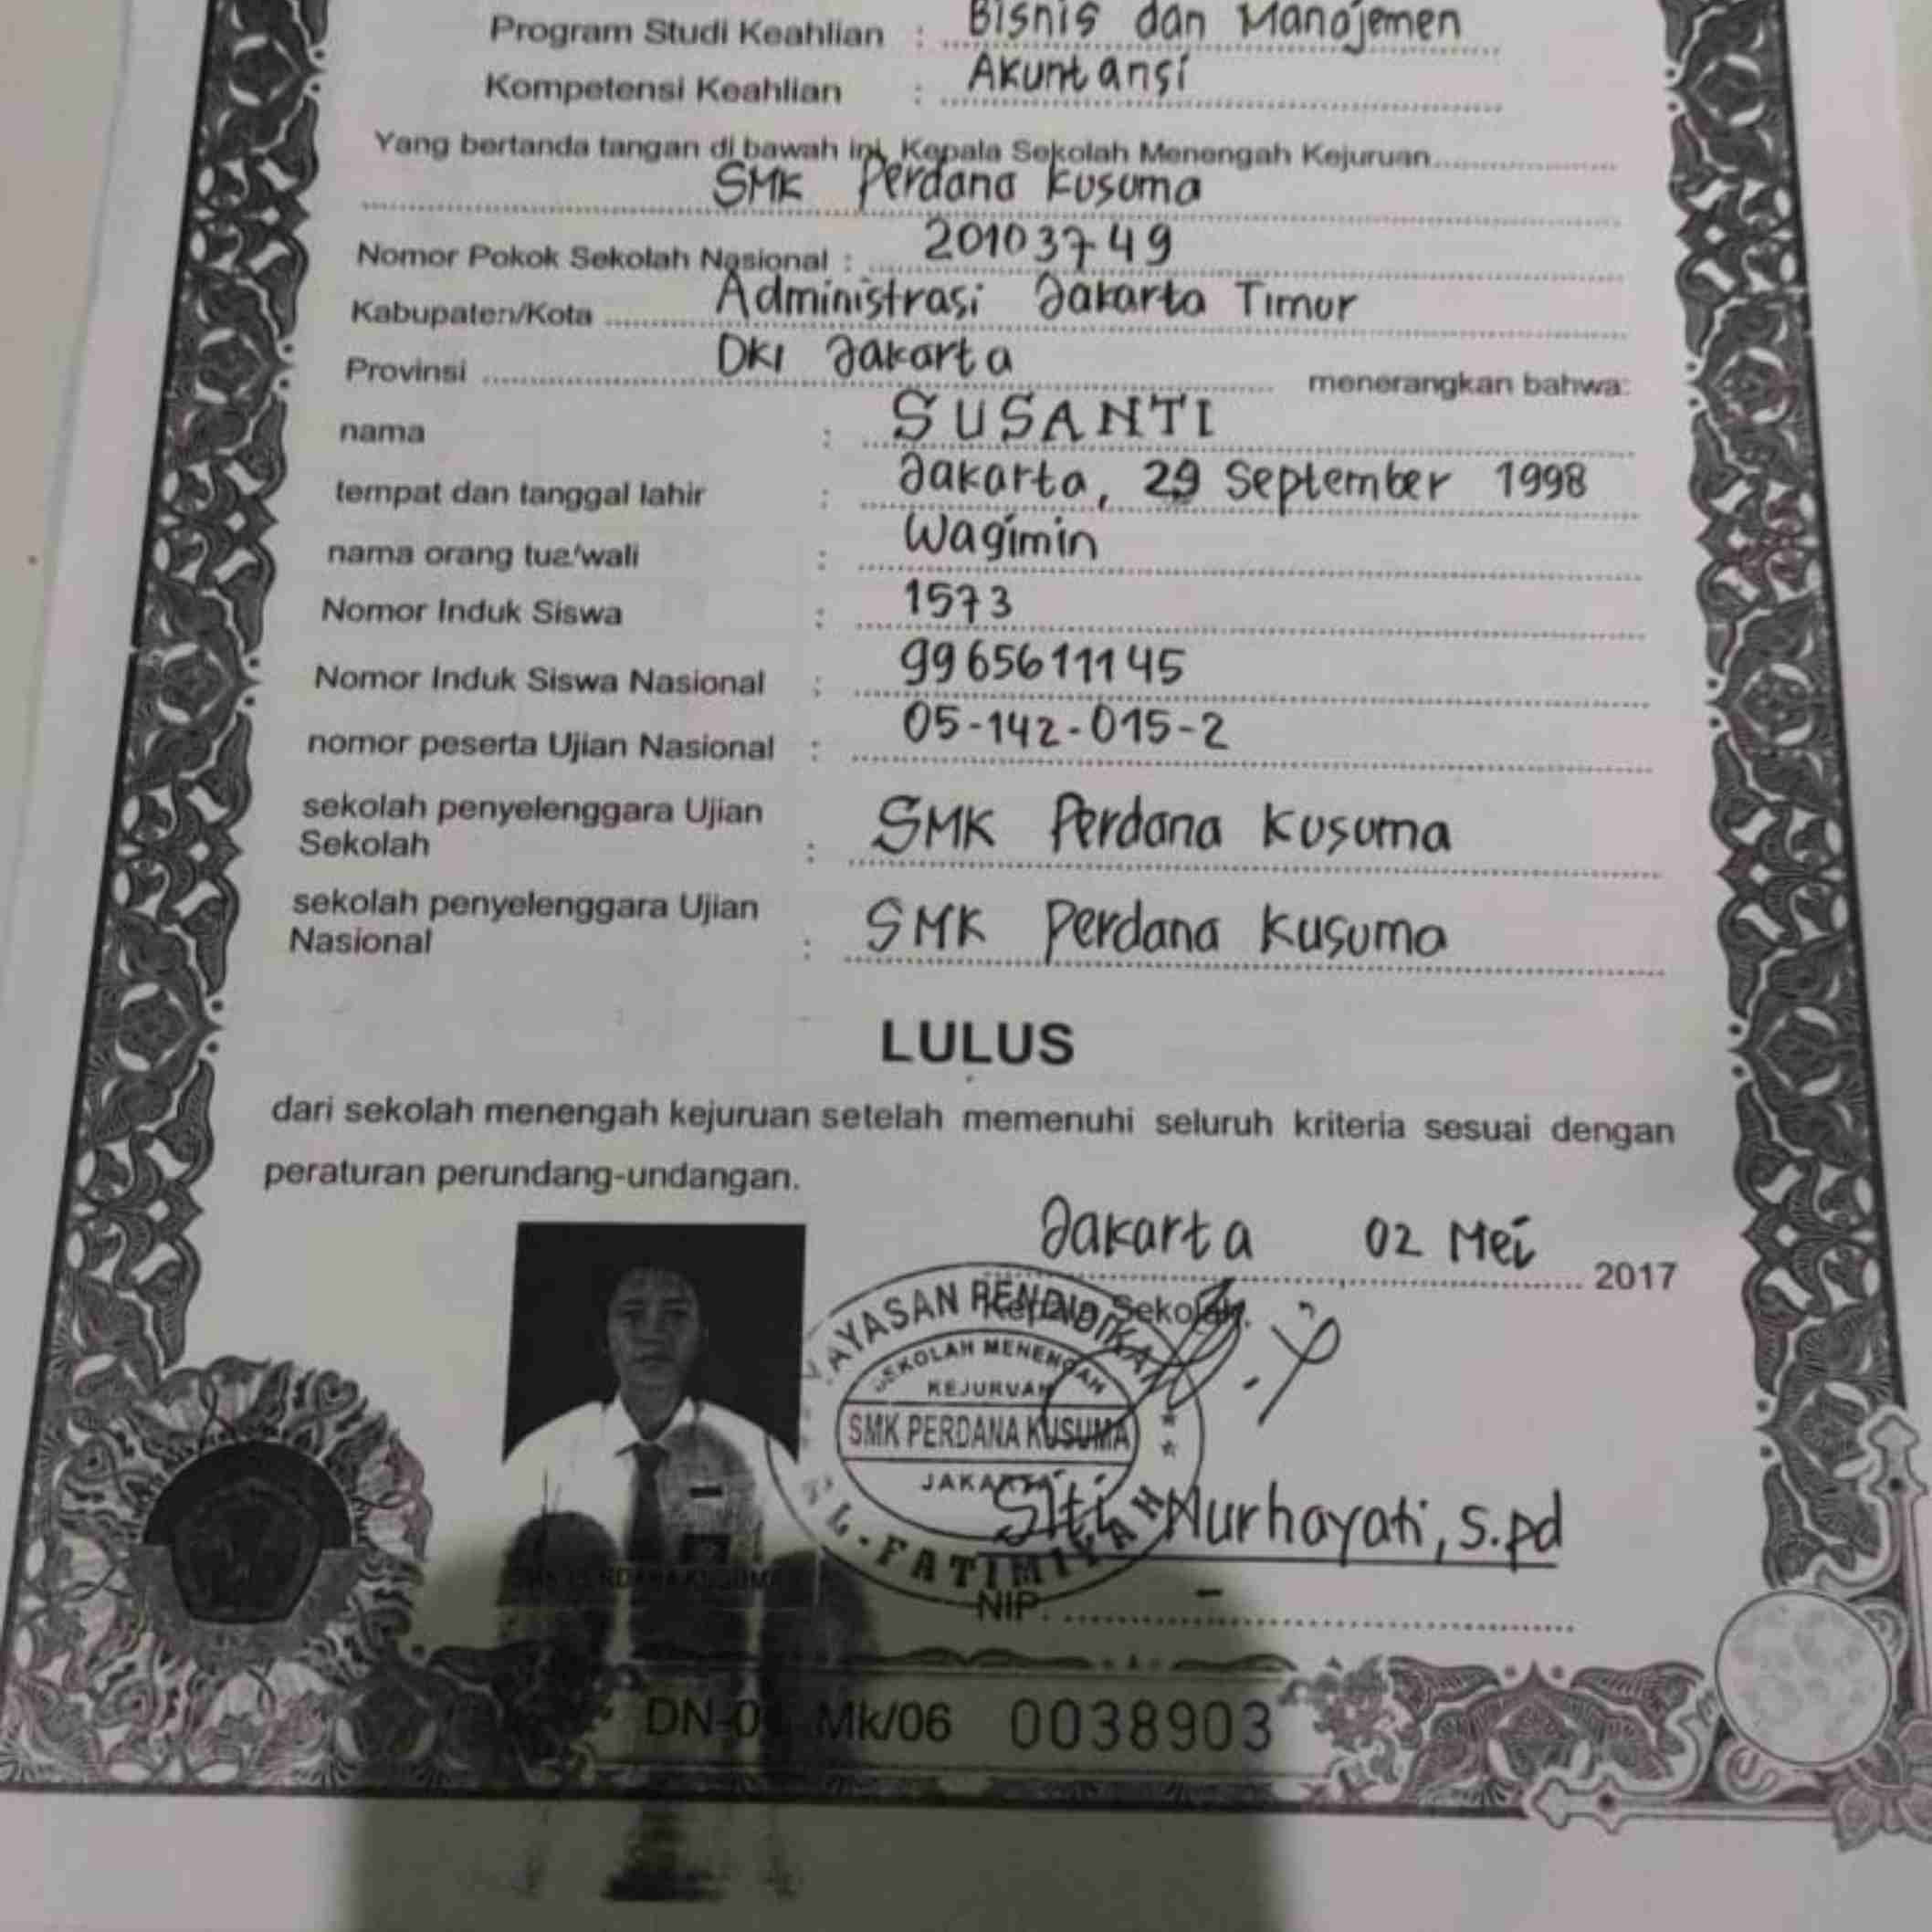 Program Studi Keahlian : Bisnis dan Manajemen
Kompetensi Keahlian : Akuntansi
Yang bertanda tangan di bawah ini, Kepala Sekolah Menengah Kejuruan
SMK Perdana Kusuma
Nomor Pokok Sekolah Nasional : 20103749
Kabupaten/Kota Administrasi Jakarta Timur
Provinsi DKI Jakarta menerangkan bahwa:
nama : SUSANTI
tempat dan tanggal lahir : Jakarta, 29 September 1998
nama orang tua/wali : Wagimin
Nomor Induk Siswa : 1573
Nomor Induk Siswa Nasional : 9965611145
nomor peserta Ujian Nasional : 05-142-015-2
sekolah penyelenggara Ujian
Sekolah : SMK Perdana Kusuma
sekolah penyelenggara Ujian
Nasional : SMK Perdana Kusuma
LULUS
dari sekolah menengah kejuruan setelah memenuhi seluruh kriteria sesuai dengan
peraturan perundang-undangan.
Jakarta 02 Mei 2017
Kepala Sekolah,
YAYASAN PENDIDIKAN
SEKOLAH MENENGAH
KEJURUAN
SMK PERDANA KUSUMA
JAKARTA
AL-FATIMIYAH
Siti Nurhayati, S.pd
NIP. -
SMK PERDANA KUSUMA
Mk/06 0038903